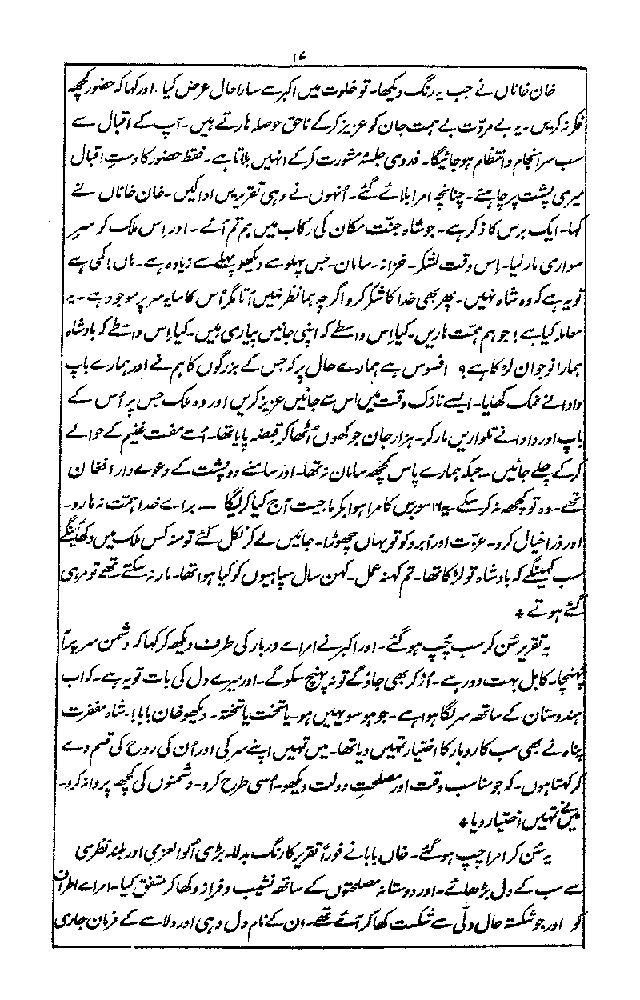 ۱۷
خان خاناں نے جب یہ رنگ دیکھا۔ تو خلوت میں اکبر سے سارا حال عرض کیا۔ اور کہا کہ حضور کچھ
فکر نہ کریں۔ یہ بے مروّت بے ہمت جان کو عزیز کر کے ناحق حوصلہ ہارتے ہیں۔ آپ کے اقبال سے
سب سرانجام و انتظام ہو جائیگا۔ فدوی جلسۂ مشورت کر کے انہیں بلاتا ہے۔ فقط حضور کا دستِ اقبال
میری پشت پر چاہئے۔ چنانچہ امرا بلائے گئے۔ اُنہوں نے وہی تقریریں ادا کیں۔ خان خاناں نے
کہا۔ ایک برس کا ذکر ہے۔ جو شاہ جنّت مکان کی رکاب میں ہم تم آئے۔ اور اس ملک کو سرِ
سواری مار لیا۔ اِس وقت لشکر۔ خزانہ۔ سامان۔ جس پہلو سے دیکھو پہلے سے زیادہ ہے۔ ہاں! کمی ہے
تو یہ ہے کہ وہ شاہ نہیں۔ پھر بھی خدا کا شکر کرو اگرچہ ہما نظر نہیں آتا مگر اُس کا سایہ سر پر موجود ہے۔ یہ
معاملہ کیا ہے! جو ہم ہمّت ہاریں۔ کیا اِس واسطے کہ اپنی جانیں پیاری ہیں۔ کیا اِس واسطے کہ بادشاہ
ہمارا نوجوان لڑکا ہے؟ افسوس ہے ہمارے حال پر کہ جس کے بزرگوں کا ہم نے اور ہمارے باپ
دادا نے نمک کھایا۔ ایسے نازک وقت میں اس سے جانیں عزیز کریں اور وہ ملک جس پر اُس کے
باپ اور دادا نے تلواریں مار کر۔ ہزار جان جوکھوں اُٹھا کر قبضہ پایا تھا۔ اُسے مفت غنیم کے حوالے
کر کے چلے جائیں۔ جبکہ ہمارے پاس کچھ سامان نہ تھا۔ اور سامنے دو پشت کے دعوے دار افغان
تھے۔ وہ تو کچھ نہ کر سکے۔ یہ ۱۶ سو برس کا مرا ہوا بکرماجیت آج کیا کر لیگا۔ برائے خدا ہمّت نہ ہارو۔
اور ذرا خیال کرو۔ عزّت اور آبرو کو تو یہاں چھوڑا۔ جانیں لے کر نکل گئے تو منہ کس ملک میں دکھائینگے
سب کہینگے کہ بادشاہ تو لڑکا تھا۔ تم کہنہ عمل۔ کہن سال سپاہیوں کو کیا ہوا تھا۔ مار نہ سکتے تھے تو مر ہی
گئے ہوتے ٭
یہ تقریر سُن کر سب چُپ ہو گئے۔ اور اکبر نے امراے دربار کی طرف دیکھ کر کہا کہ دشمن سر پر آ
پہنچا۔ کابل بہت دور ہے۔ اُڑ کر بھی جاؤ گے تو نہ پہنچ سکو گے۔ اور میرے دل کی بات تو یہ ہے۔ کہ اب
ہندوستان کے ساتھ سر لگا ہوا ہے۔ جو ہو سو یہیں ہو یا تخت یا تختہ۔ دیکھو خان بابا! شاہ مغفرت
پناہ نے بھی سب کاروبار کا اختیار تمہیں دیا تھا۔ میں تمہیں اپنے سر کی اور اُن کی روح کی قسم دے
کر کہتا ہوں۔ کہ جو مناسب وقت اور مصلحتِ دولت دیکھو۔ اُسی طرح کرو۔ دشمنوں کی کچھ پروا نہ کرو۔
میں نے تمہیں اختیار دیا ٭
یہ سُن کر امرا چپ ہو گئے۔ خان بابا نے فوراً تقریر کا رنگ بدلا۔ بڑی اُولوالعزمی اور بلند نظری
سے سب کے دل بڑھائے۔ اور دوستانہ مصلحتوں کے ساتھ نشیب و فراز دکھا کر متفق کیا۔ امراے اطراف
کو اور جو شکستہ حال دلّی سے شکست کھا کر آئے تھے۔ ان کے نام دل دہی اور دلاسے کے فرمان جاری